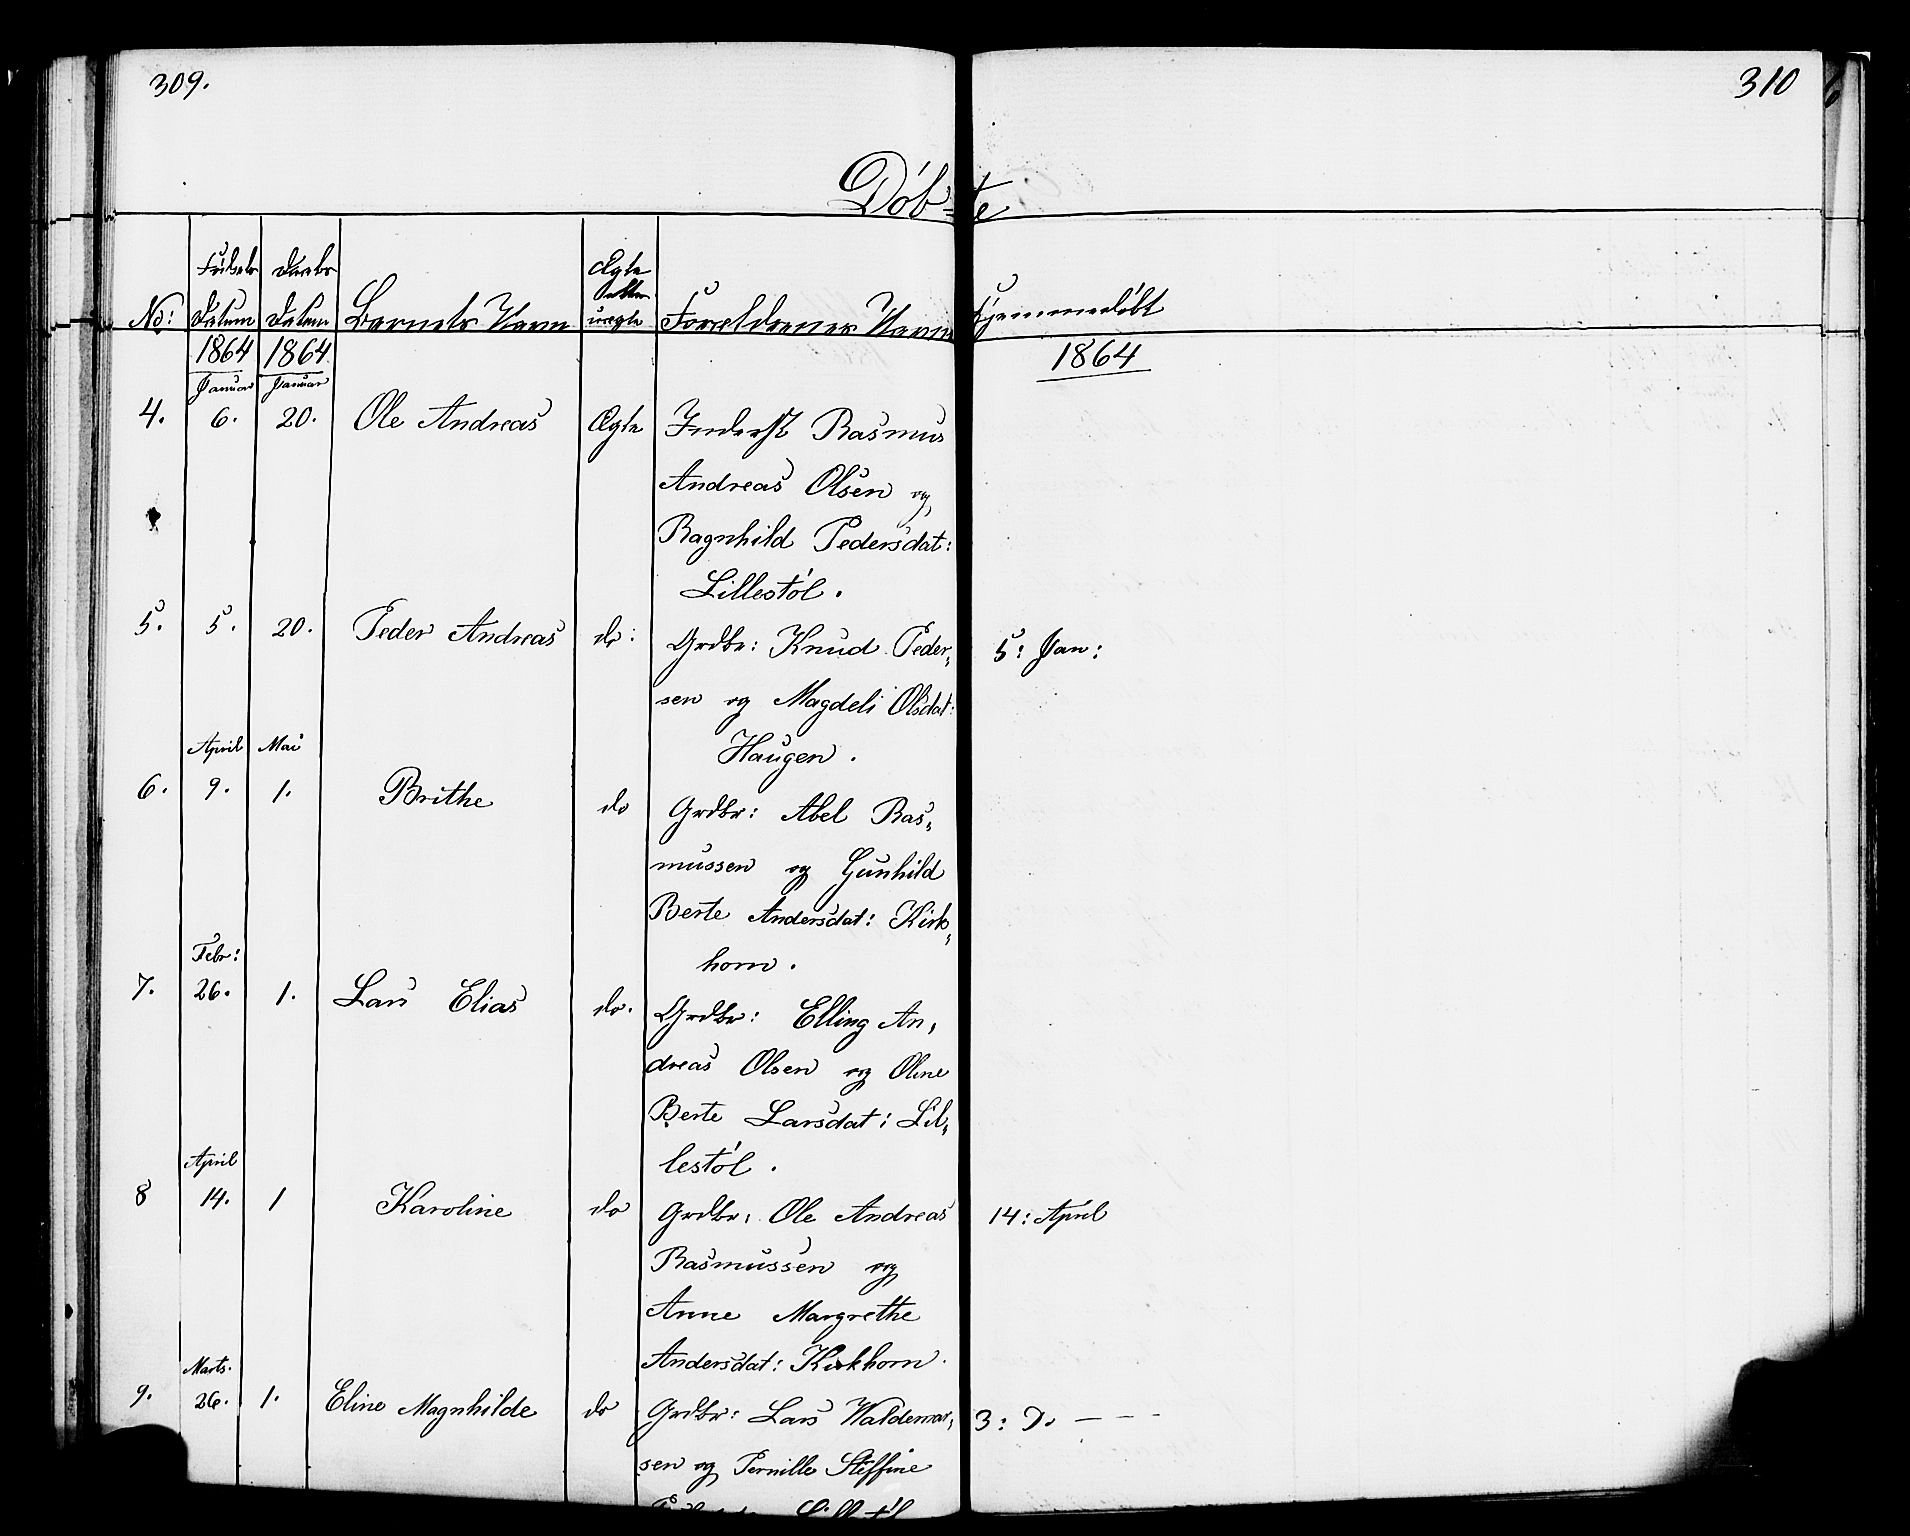 309.
310
Døb-te
No:
Fødsels Datum
Daabs Datum
Barnets Navn
Ægte eller uægte
Forældrenes Navn
Hjemmedøbt
1864 1864 1864
Januar Januar
4. 6. 20. Ole Andreas Ægte Inderst Rasmus
Andreas Olsen og
Ragnhild Pedersdat:
Lillestøl.
5. 5. 20. Peder Andreas do: Grdbr: Knud Peder„ 5: Jan:
sen og Magdeli Olsdat:
Haugen.
April Mai
6. 9. 1. Brithe do Grdbr: Abel Ras„
mussen og Gunhild
Berte Andersdat: Kirk„
horn.
Febr:
7. 26. 1. Lars Elias do. Grdbr: Elling An„
dreas Olsen og Oline
Berte Larsdat: Lil„
lestøl.
April
8 14. 1 Karoline do Grdbr: Ole Andreas 14: April
Rasmussen og
Anne Margrethe
Andersdat: Kirkhorn.
Marts.
9. 26. 1. Eline Magnhilde do Grdbr: Lars Waldemar„ 3: D. — — —
sen og Pernille Steffine
Lillestøl